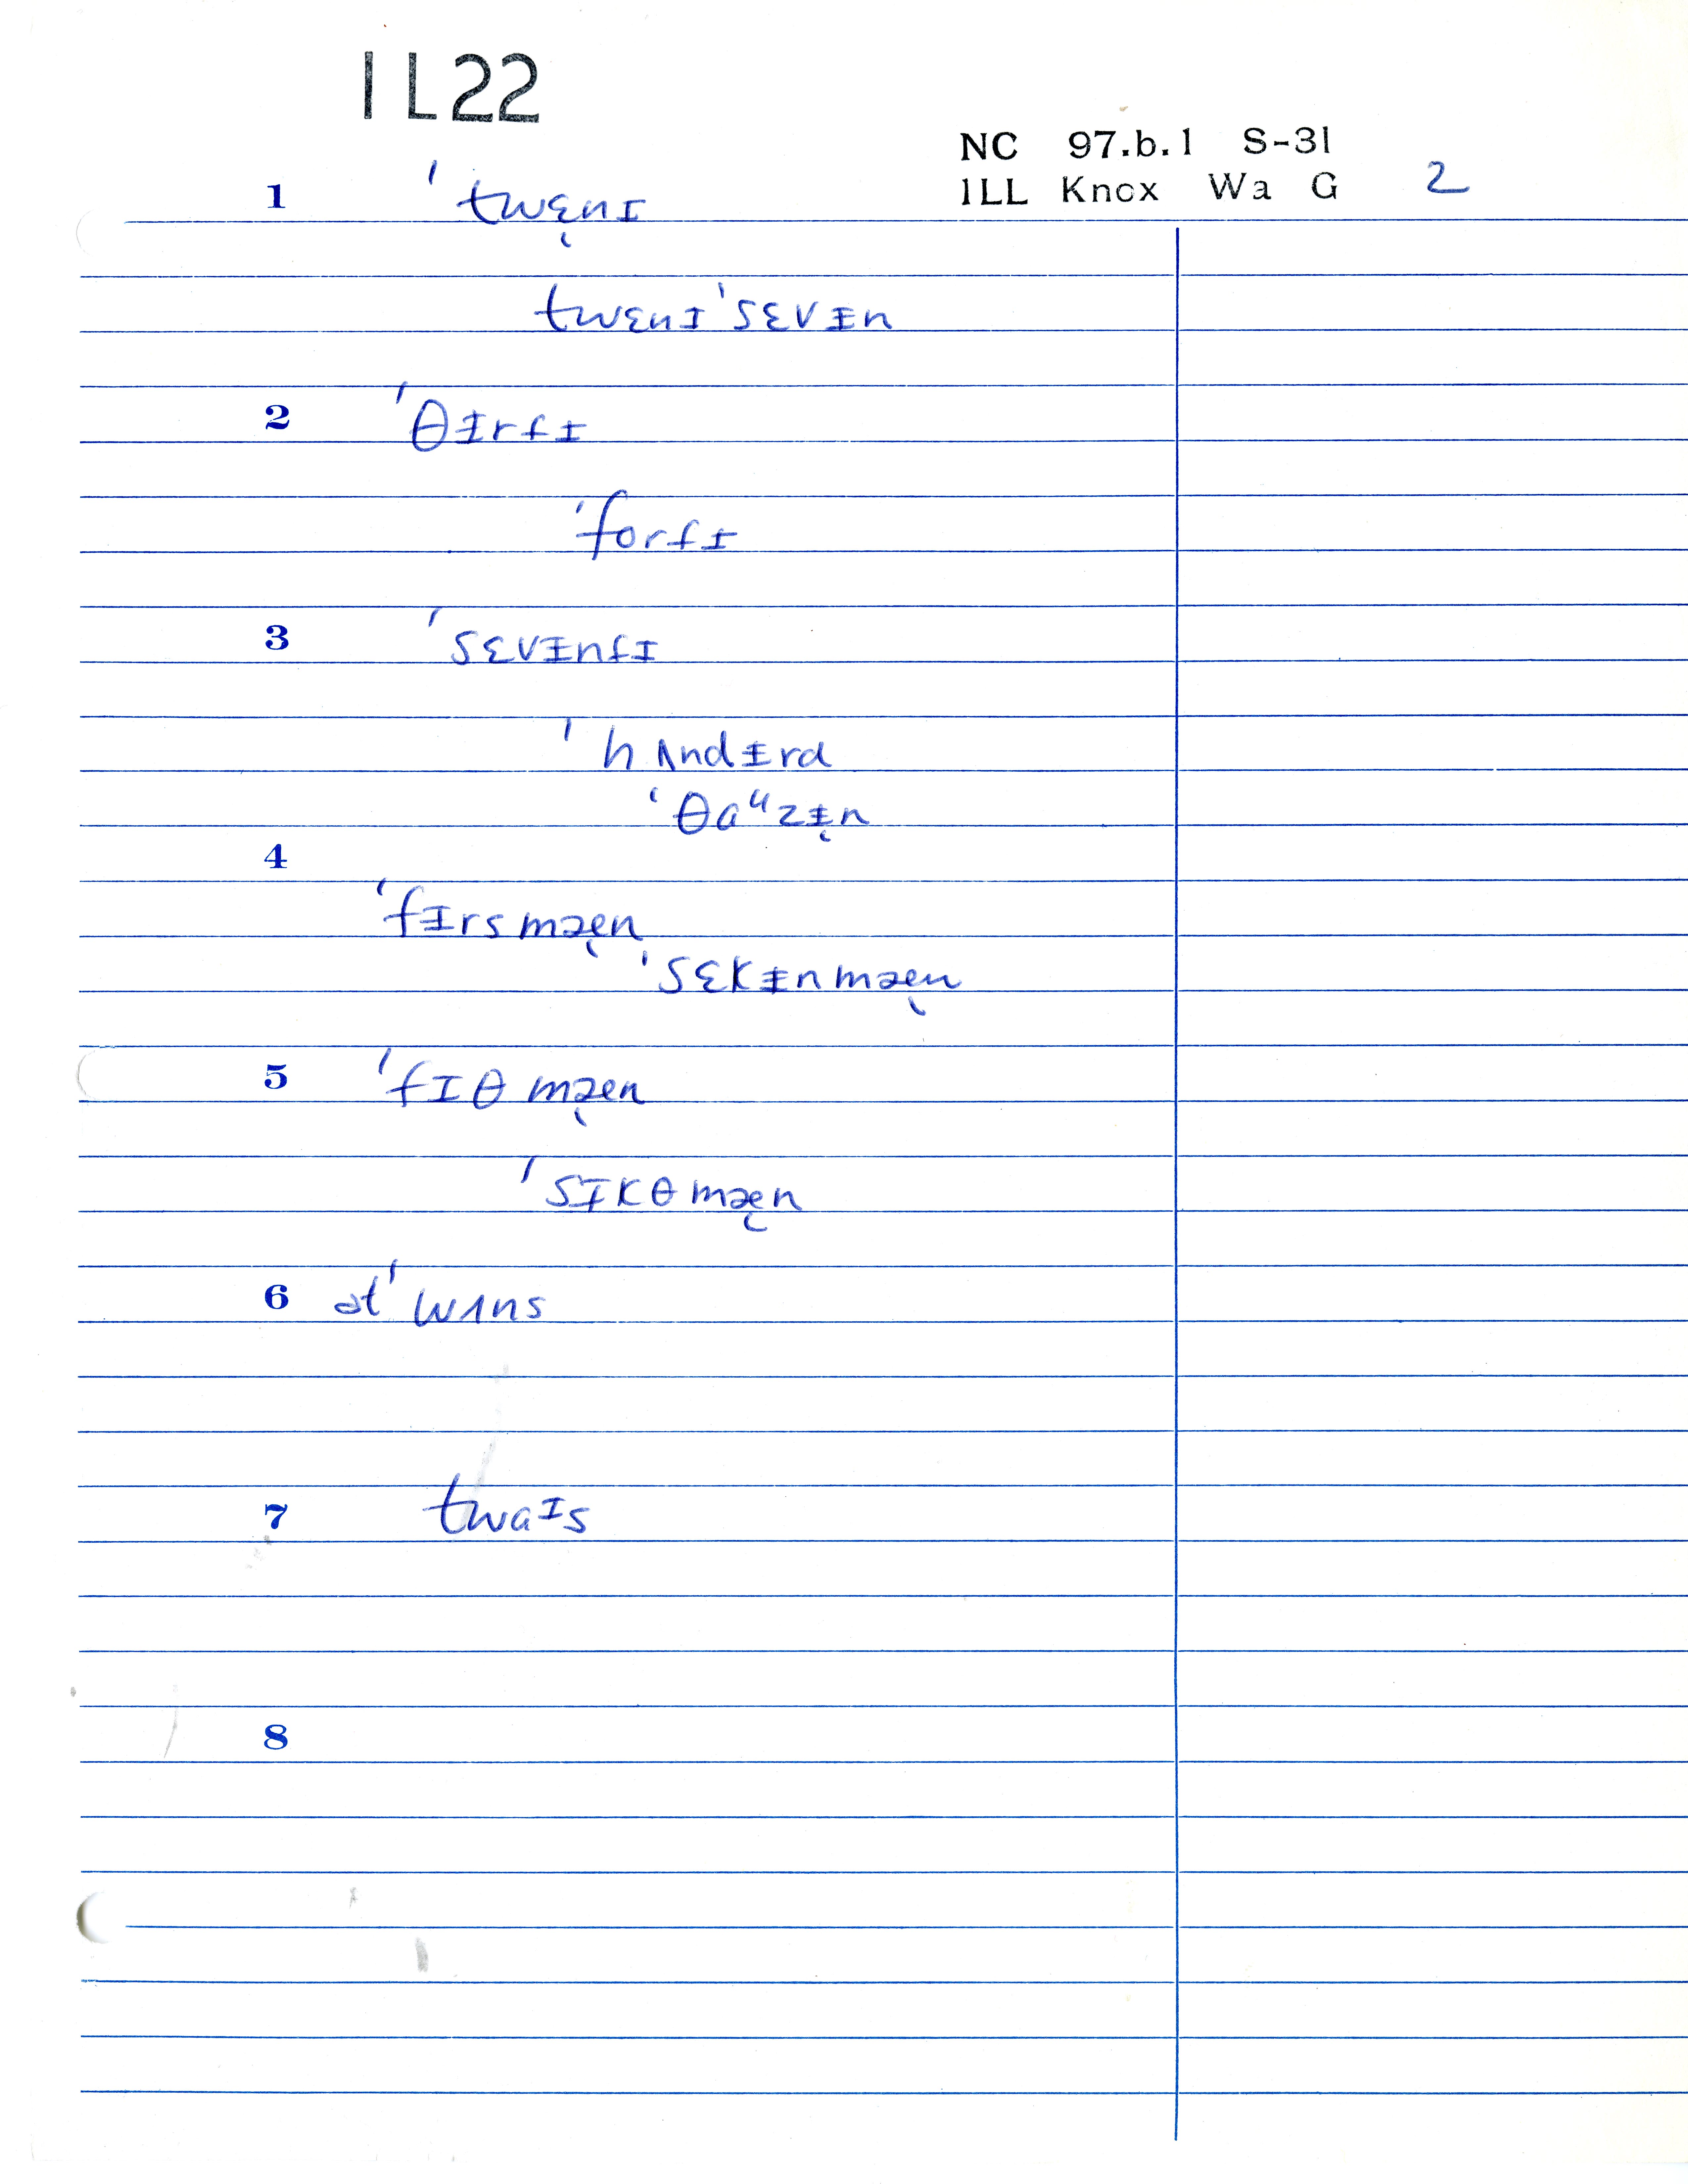 IL22
NC 97.b.1 S-31
ILL Knox Wa G 2
1 ˈtwɛ̨nɪ
twɛnɪˈsɛvɨn
2 ˈθɨrt̬ɨ
ˈfort̬ɨ
3 ˈsɛvɨnt̬ɪ
ˈhʌndɨrd
ˈθaᵘzɨ̨n
4
ˈfɨrsmæ̨n
ˈsɛkɨnmæ̨n
5 ˈfɪθmæ̨n
ˈsɨkθmæ̨n
6 ətˈwʌns
7 twaᶦs
8